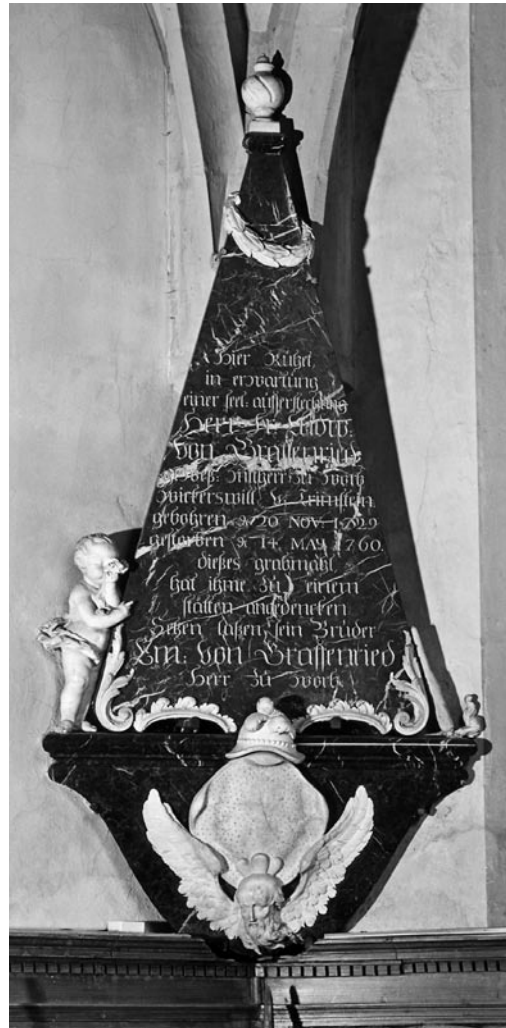 Hier Ruhet
in erwartung
einer seel: aufferstechung
Herr Ludw:
Von Graffenried
Mitherr Zu Worb
Wickerswill Trimstein
gebohren 20 NOV. 1729
gestorben 14 MAY 1760.
dießes grabmahl
hat ihme Zu einem
stäten angedencken
Setzen laßen sein Bruder
Em: Von Graffenried
Herr Zu Worb